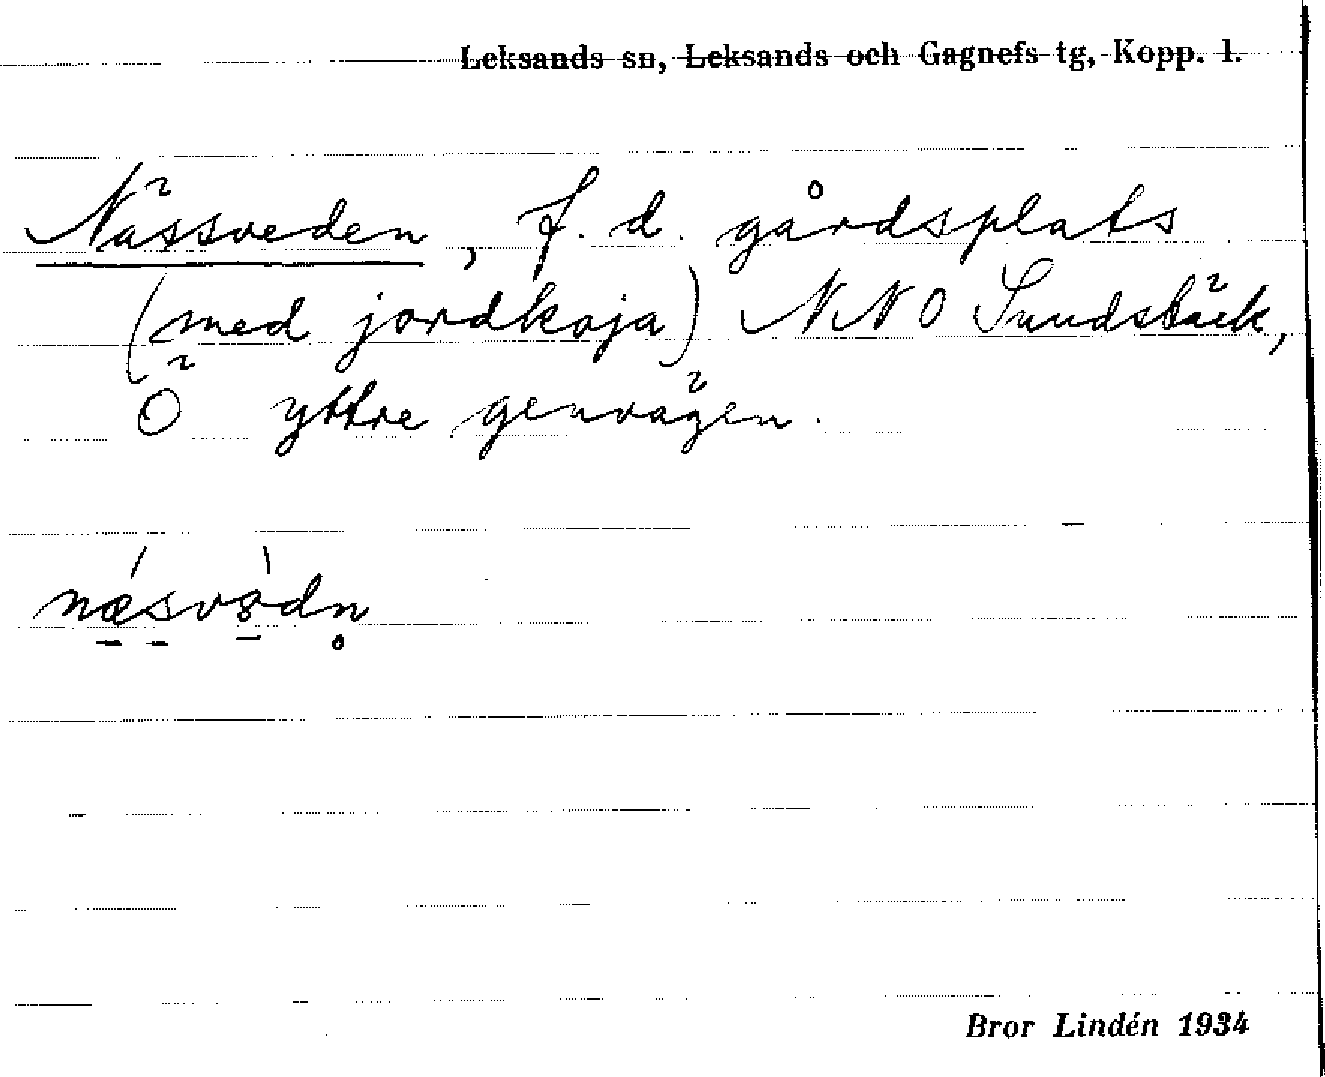 Leksands sn, Leksands och Gagnefs tg, Kopp. l.
Nässveden, f. d. gårdsplats
(med jordkoja) NNO Sundsbäck,
Ö yttre genvägen.
Bror Lindén 1934